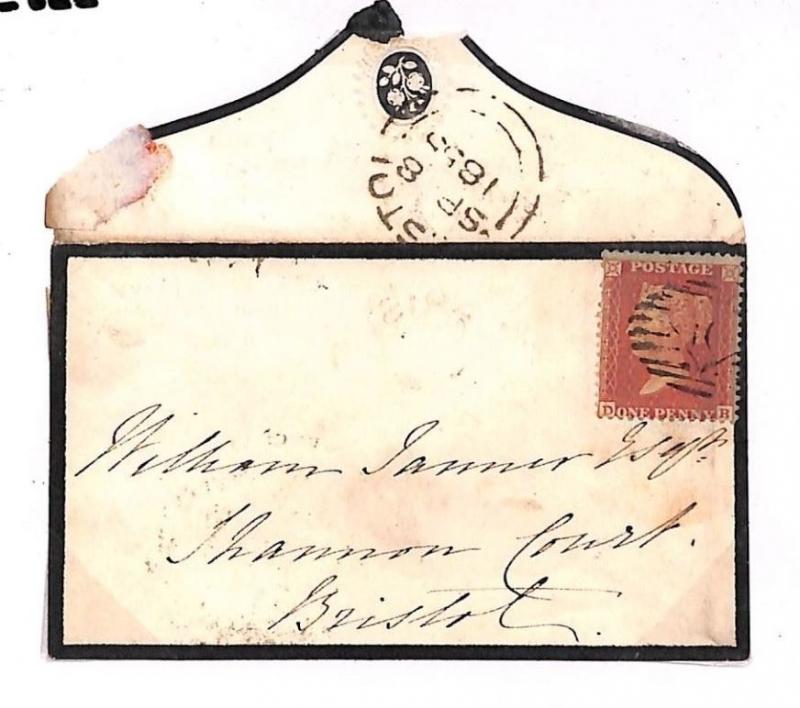 STOL
SP 8
185
POSTAGE
D ONE PENNY B
William Tanner Esqr.
Shannon Court.
Bristol.